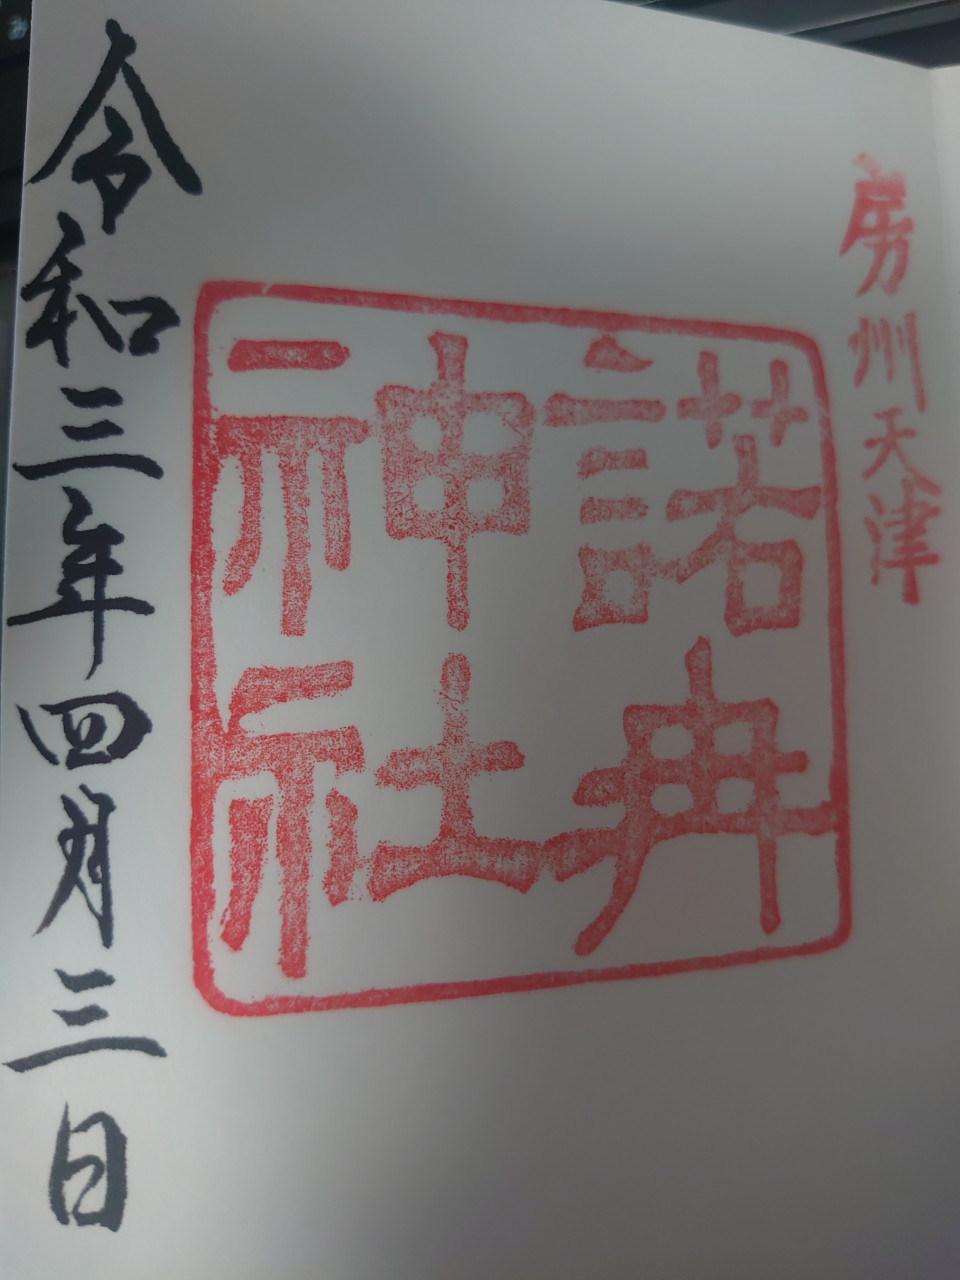 房州天津
諾冉
神社
令和三年四月三日